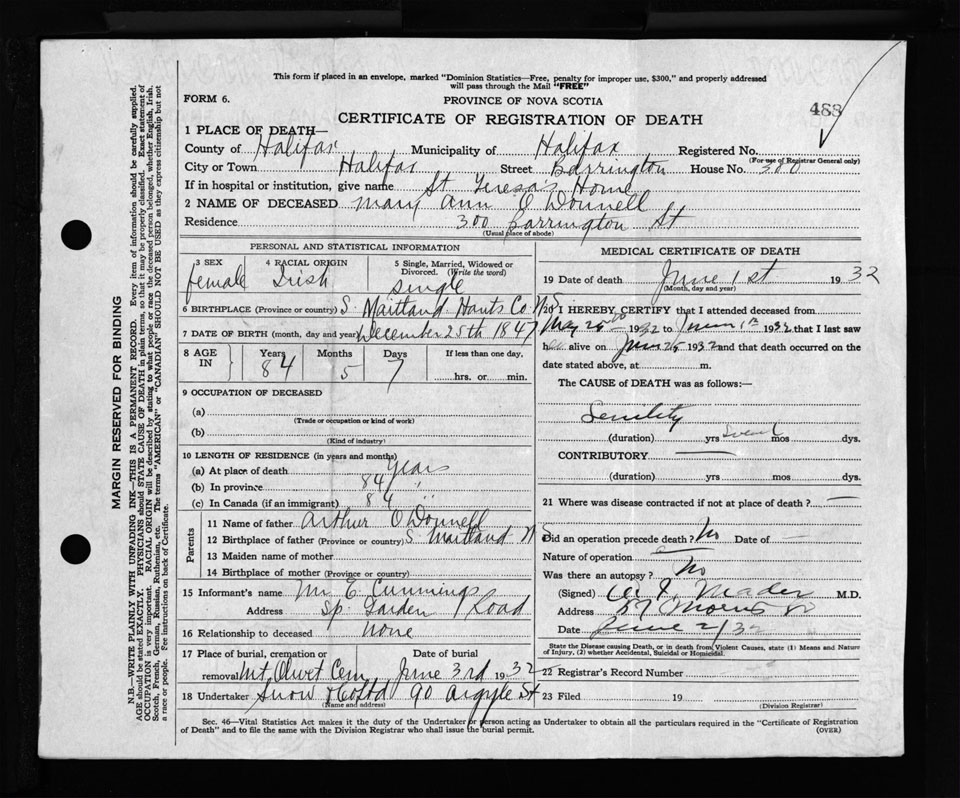 This form if placed in an envelope, marked "Dominion Statistics—Free, penalty for improper use, $300," and properly addressed
will pass through the Mail "FREE"
FORM 6.
PROVINCE OF NOVA SCOTIA
488
CERTIFICATE OF REGISTRATION OF DEATH
1 PLACE OF DEATH—
County of Halifax Municipality of Halifax Registered No.
(For use of Registrar General only)
City or Town Halifax Street Barrington House No. 300
If in hospital or institution, give name St Teresa's Home
2 NAME OF DECEASED Mary Ann O'Donnell
Residence 300 Barrington St
(Usual place of abode)
PERSONAL AND STATISTICAL INFORMATION
3 SEX 4 RACIAL ORIGIN 5 Single, Married, Widowed or
Divorced. (Write the word)
female Irish single
6 BIRTHPLACE (Province or country) S. Maitland Hants Co N S
7 DATE OF BIRTH (month, day and year) December 25th 1847
8 AGE IN Years Months Days If less than one day,
84 5 7 hrs. or min.
9 OCCUPATION OF DECEASED
(a)
(Trade or occupation or kind of work)
(b)
(Kind of industry)
10 LENGTH OF RESIDENCE (in years and months)
(a) At place of death years
(b) In province 84 "
(c) In Canada (if an immigrant) 84 "
Parents
11 Name of father Arthur O'Donnell
12 Birthplace of father (Province or country) S. Maitland N S
13 Maiden name of mother
14 Birthplace of mother (Province or country)
15 Informant's name E Cummings
Address Sp. Garden Road
16 Relationship to deceased none
17 Place of burial, cremation or Date of burial
removal Mt Olivet Cem June 3rd 1932
18 Undertaker Snow & Co Ltd 90 Argyle St
(Name and address)
MEDICAL CERTIFICATE OF DEATH
19 Date of death June 1st 1932
(Month, day and year)
20 I HEREBY CERTIFY that I attended deceased from
May 1932 to June 1st 1932 that I last saw
h alive on 1932 and that death occurred on the
date stated above, at m.
The CAUSE of DEATH was as follows:—
Senility
(duration) yrs mos dys.
CONTRIBUTORY
(duration) yrs mos dys.
21 Where was disease contracted if not at place of death?
Did an operation precede death? No Date of
Nature of operation
Was there an autopsy? No
(Signed) Mader M.D.
Address 57 Morris St
Date June 2/32
State the Disease causing Death, or in death from Violent Causes, state (1) Means and Nature
of Injury, (2) whether Accidental, Suicidal or Homicidal.
22 Registrar's Record Number
23 Filed 19
(Division Registrar)
Sec. 46—Vital Statistics Act makes it the duty of the Undertaker or person acting as Undertaker to obtain all the particulars required in the "Certificate of Registration
of Death" and to file the same with the Division Registrar who shall issue the burial permit.
(OVER)
MARGIN RESERVED FOR BINDING
N.B.—WRITE PLAINLY WITH UNFADING INK—THIS IS A PERMANENT RECORD. Every item of information should be carefully supplied.
AGE should be stated EXACTLY. PHYSICIANS should STATE CAUSE OF DEATH in plain terms, so that it may be properly classified. Exact statement of
OCCUPATION is very important. RACIAL ORIGIN will be described by stating to what people or race the deceased person belonged, whether English, Irish,
Scotch, French, German, Russian, Ruthenian, etc. The terms "AMERICAN" or "CANADIAN" SHOULD NOT BE USED as they express citizenship but not
a race or people. Fee instructions on back of Certificate.